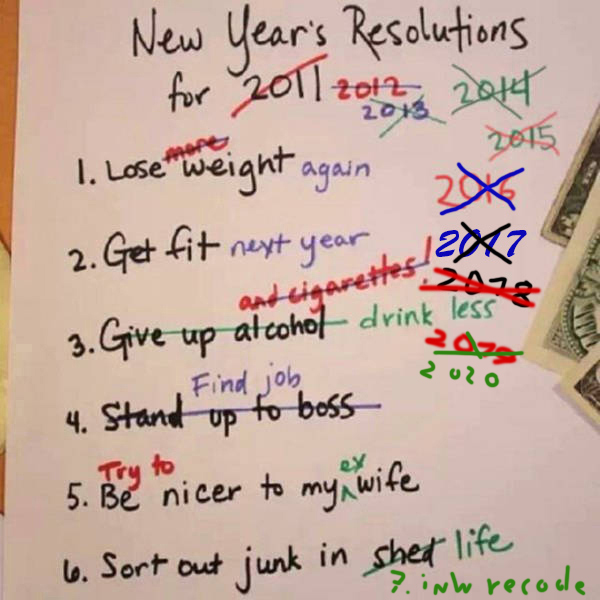 New Year's Resolutions
for 2011 2012 2013 2014
2015
1. Lose more weight again
2016
2. Get fit next year
2017
2018
and cigarettes!
3. Give up alcohol drink less
2019
2020
Find job
4. Stand up to boss
Try to
5. Be nicer to my ex wife
6. Sort out junk in shed life
7. inw recode